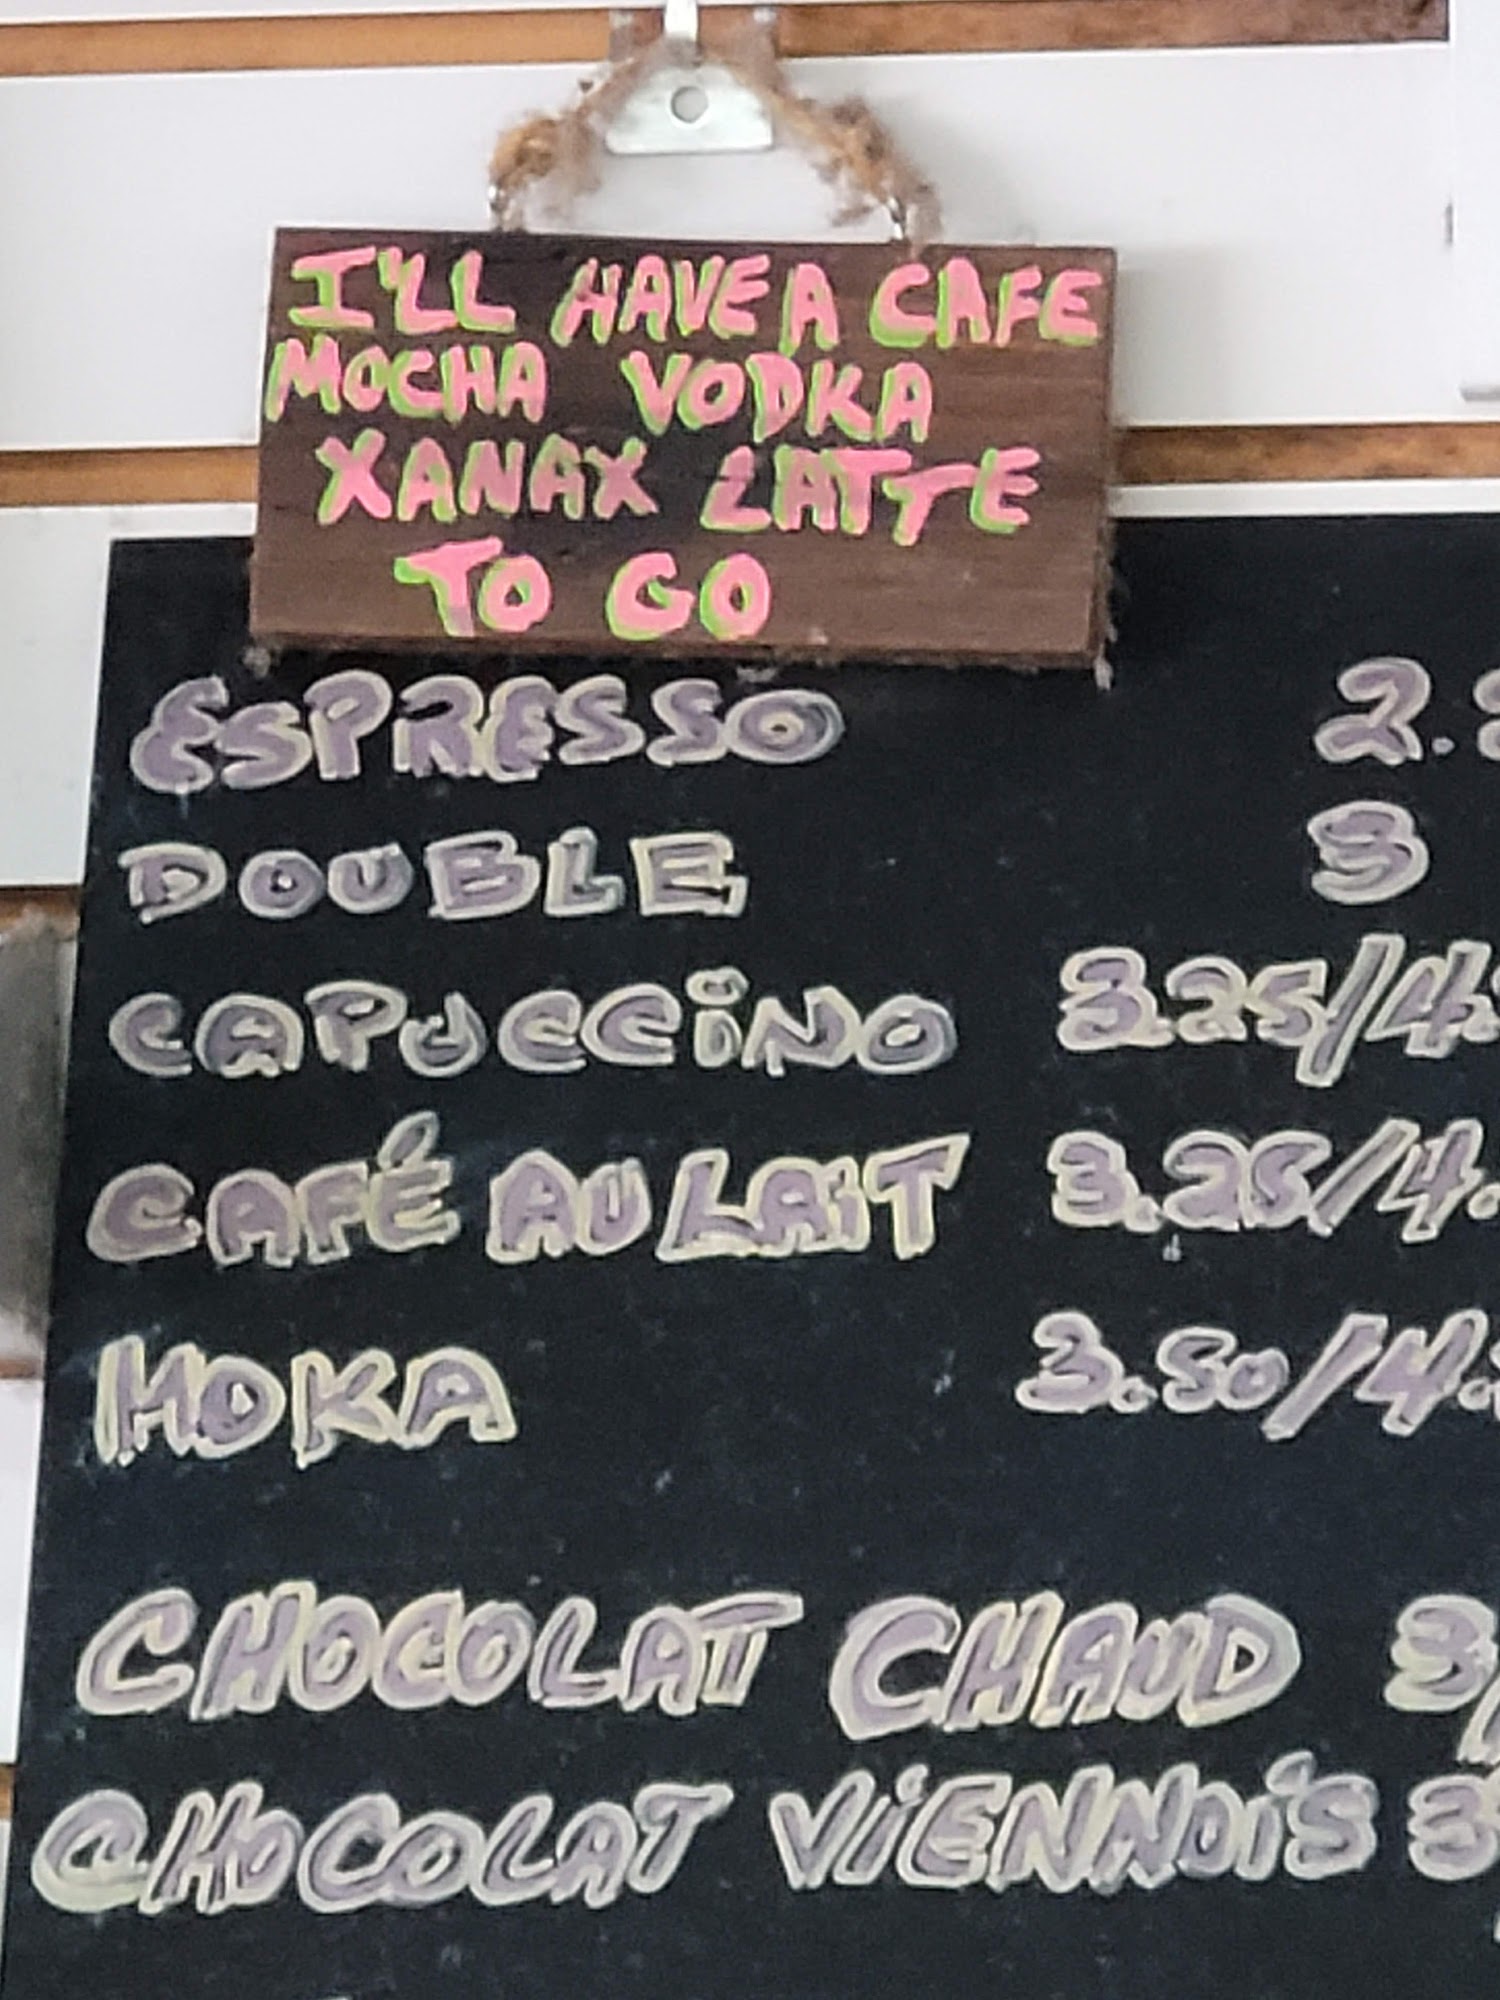 I'LL HAVE A CAFE
MOCHA VODKA
XANAX LATTE
TO GO
ESPRESSO 2.
DOUBLE 3
CAPUCCINO 3.25/4.
CAFÉ AU LAIT 3.25/4.
MOKA 3.50/4.
CHOCOLAT CHAUD 3/
CHOCOLAT VIENNOIS 3